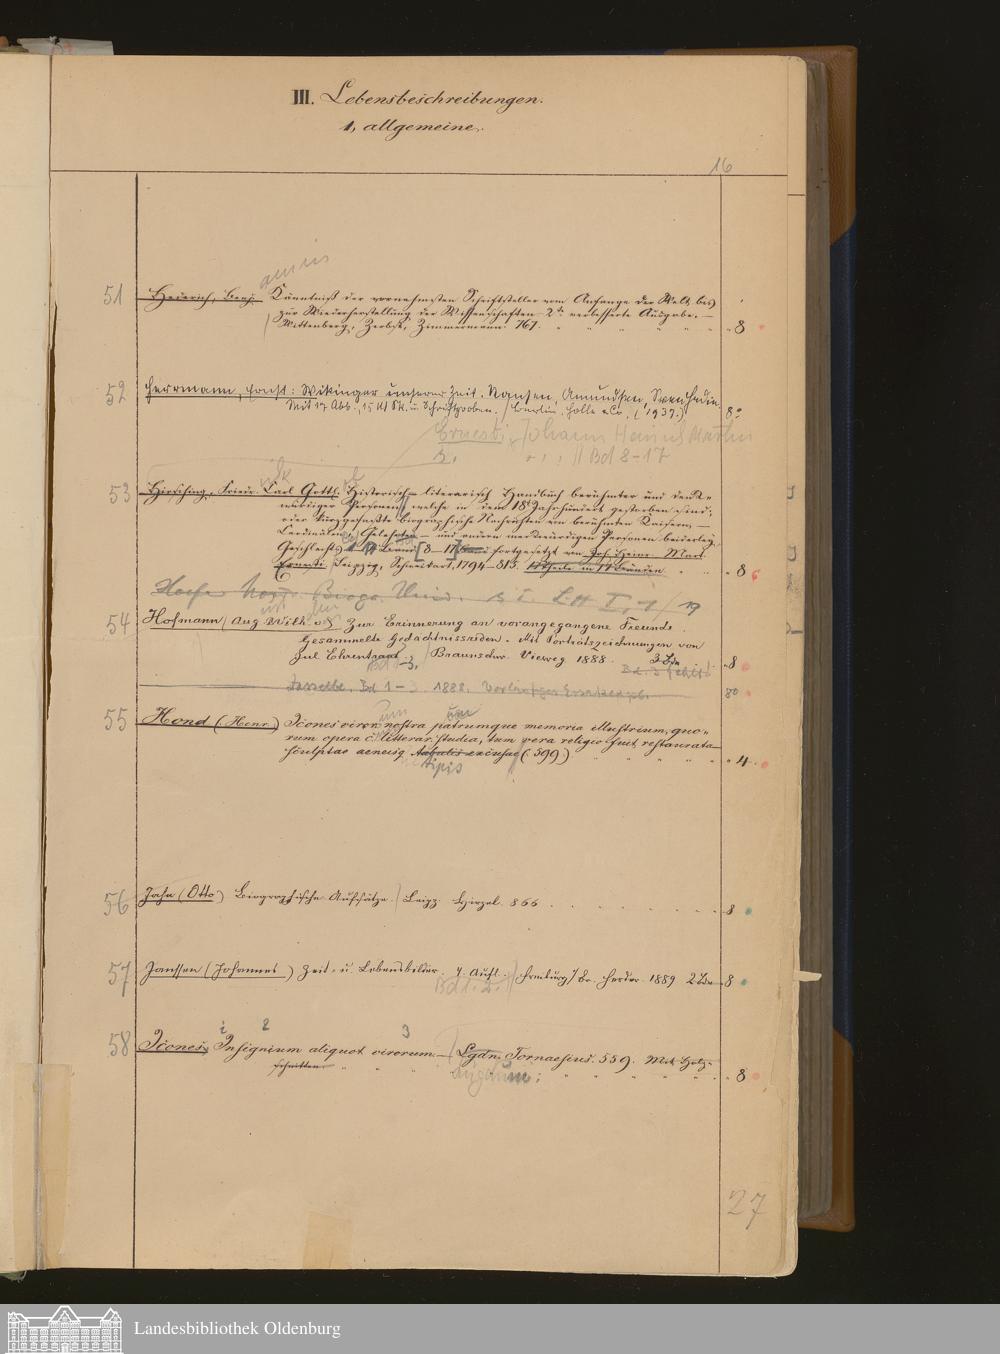 III. Lebensbeschreibungen.
1, allgemeine.
16
51 Hederich, Benj. Känntniß der vornehmsten Schriftsteller vom Anfange der Welt bis
zur Wiederherstellung der Wissenschaften 2te verbesserte Ausgabe. —
Wittenberg, Zerbst, Zimmermann 767. 8
52 Herrmann, Ernst: Wikinger unserer Zeit. Nansen, Amundsen, Sven Hedin.
Mit 17 Abb., 15 Kt. Sk. u. Schriftproben. / Berlin, Holle & Co. (1937.) 8°
Ernesti, Johann Heinrich Martin
s. Bd 8-17
53 Hirsching, Friedr. Carl Gottl. Historisch-literarisch Handbuch berühmter und denk-
würdiger Personen, welche in dem 18 Jahrhundert gestorben sind;
oder kurzgefaßte biographische Nachrichten von berühmten Kaisern, —
Cardinälen, Gelehrten — und andern merkwürdigen Personen beiderley
Geschlechts. [8-17] fortgesetzt von Joh. Heinr. Mart.
Ernesti. Leipzig, Schwickert, 1794-815. 17 Theile in 17 Bänden 8
54 Hofmann, Aug. Wilh. v. Zur Erinnerung an vorangegangene Freunde.
Gesammelte Gedächtnissreden. Mit Porträtzeichnungen von
Jul. Ehrentraut. / Braunschw. Vieweg 1888. 3 Bde 8
Bd 1-3. Bd. 3 fehlt!
Dasselbe. Bd 1-3. 1888. 8°
55 Hond (Henr.) Icones viror. nostra patrumque memoria illustrium, quo-
rum opera c. litterar. studia, tum vera religio fuit restaurata
sculptae aeneisq. tabulis excusae (599) 4
tipis
56 Jahn (Otto) Biographische Aufsätze. / Leipz. Hirzel 866. 8
57 Janssen (Johannes) Zeit- u. Lebensbilder. 4. Aufl. / Freiburg / Br. Herder 1889 2 Bde 8
Bd 1. 2.
58 Icones, Insignium aliquot virorum. — Lgdn. Tornaesius 559. Mit Holz-
schnitten 8
Lugdunum:
27
Landesbibliothek Oldenburg